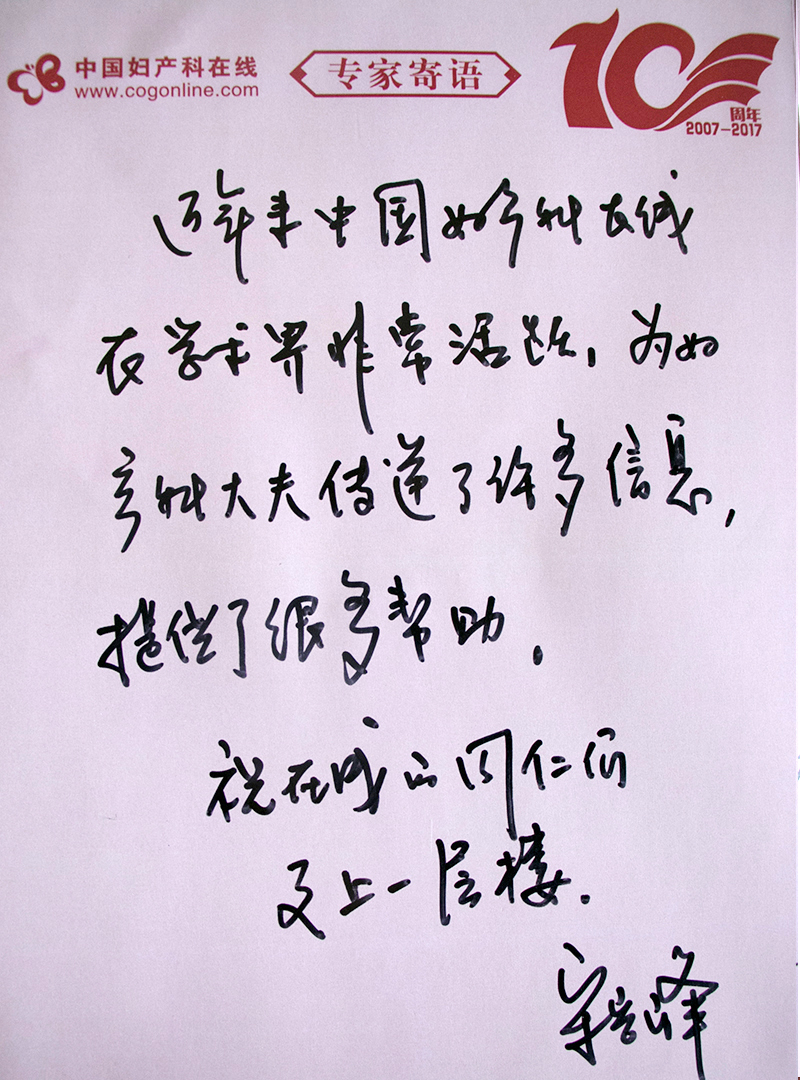 中国妇产科在线
www.cogonline.com
专家寄语
10
周年
2007-2017
近年来中国妇产科在线
在学术界非常活跃，为妇
产科大夫传递了许多信息，
提供了很多帮助。
祝在线的同仁们
更上一层楼。